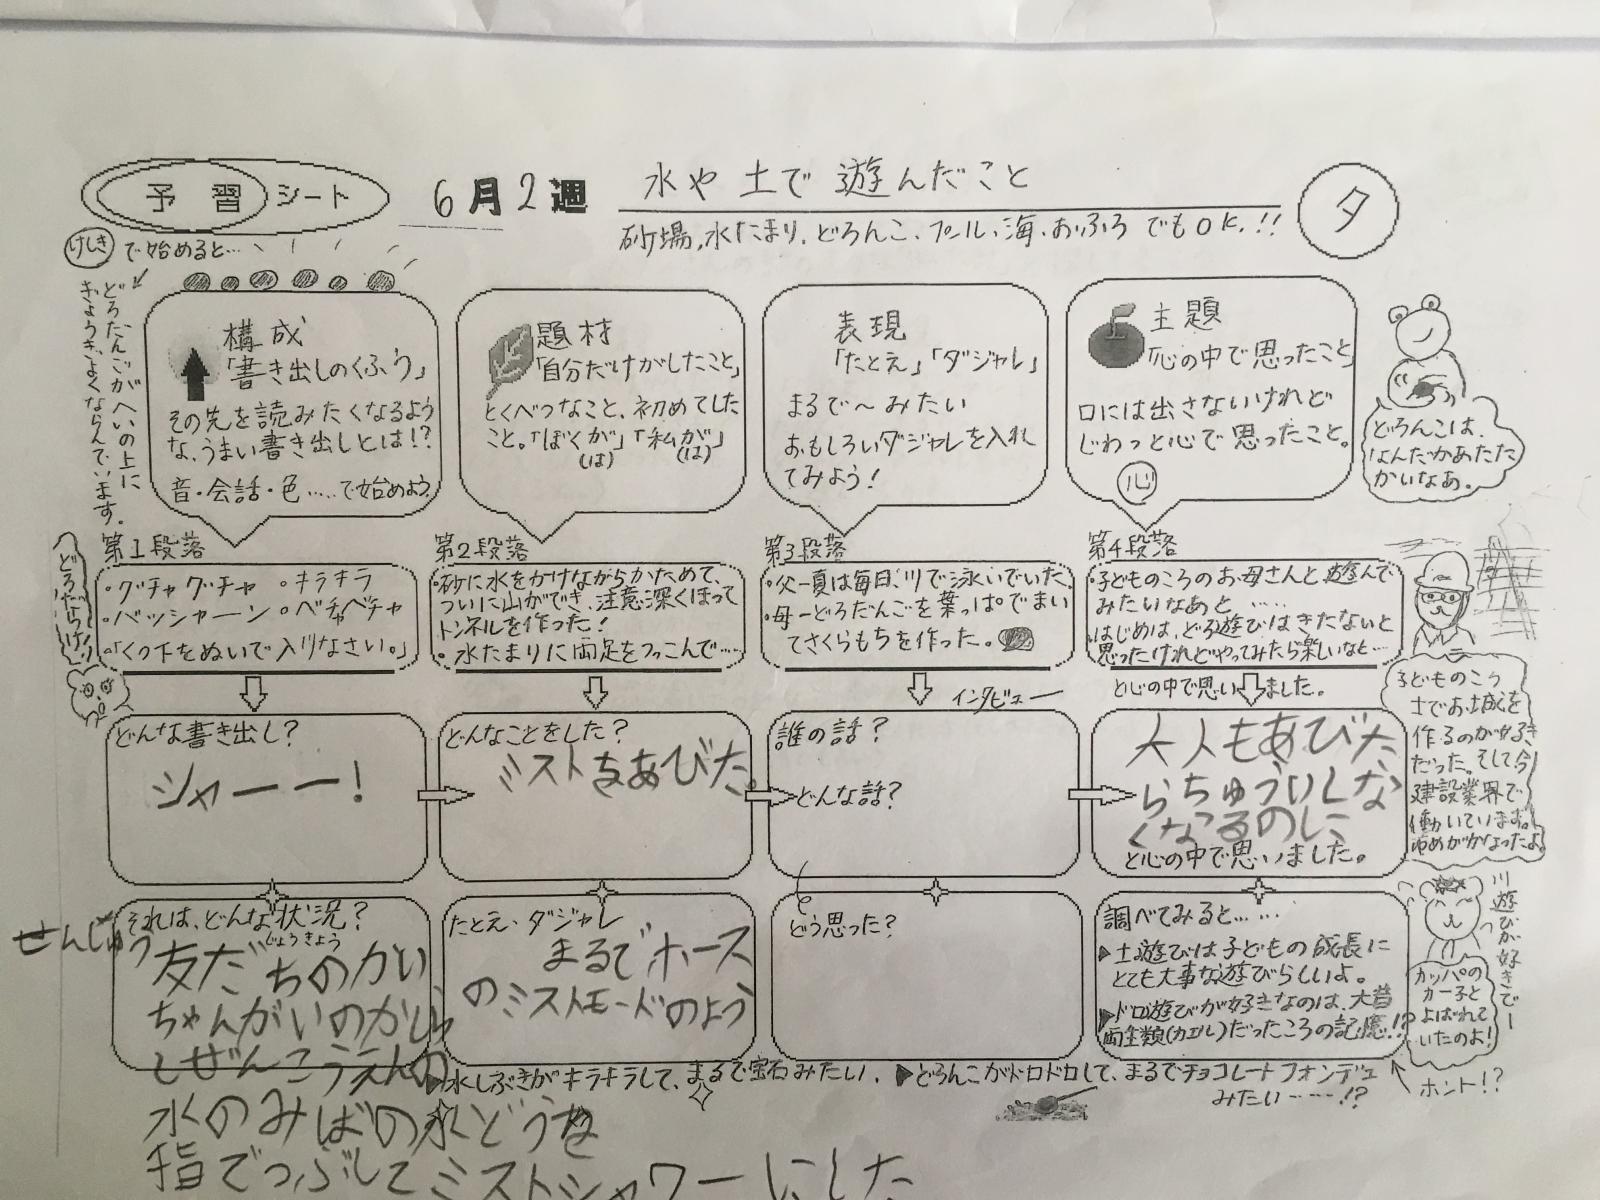 予習シート
6月2週
水や土で遊んだこと
夕
砂場、水たまり、どろんこ、プール、海、おふろでもOK.!!
けしきで始めると…
どろだんごがへいの上に
ぎょうぎよくならんでいます。
構成
「書き出しのくふう」
その先を読みたくなるよう
な、うまい書き出しとは!?
音・会話・色……で始めよう。
題材
「自分だけがしたこと」
とくべつなこと、初めてした
こと。「ぼくが」「私が」
(は) (は)
表現
「たとえ」「ダジャレ」
まるで〜みたい
おもしろいダジャレを入れ
てみよう!
主題
「心の中で思ったこと」
口には出さないけれど
じわっと心で思ったこと。
心
どろんこは、
なんだかあたた
かいなあ。
どろだらけ!
第1段落
・グチャグチャ ・キラキラ
・バッシャーン ・ベチャベチャ
・「くつ下をぬいで入りなさい。」
第2段落
・砂に水をかけながらかためて、
ついに山ができ、注意深くほって
トンネルを作った!
・水たまりに両足をつっこんで……
第3段落
・父―夏は毎日、川で泳いでいた。
・母―どろだんごを葉っぱでまい
てさくらもちを作った。
第4段落
・子どものころのお母さんと遊んで
みたいなあと……
・はじめは、どろ遊びはきたないと
思ったけれどやってみたら楽しいなと…
と心の中で思いました。
インタビュー
どんな書き出し?
シャーー!
どんなことをした?
ミストをあびた。
誰の話?
どんな話?
大人もあびた
らちゅういしな
くなるのに、
と心の中で思いました。
子どものころ
土でお城を
作るのが好き
だった。そして今
建設業界で
働いています。
それは、どんな状況?
じょうきょう
せんじゅう
友だちのかい
ちゃんがいのかしら
しぜんこうえんの
水のみばの水どうを
指でつぶしてミストシャワーにした
たとえ・ダジャレ
まるでホース
のミストモードのよう
どう思った?
調べてみると……
▶土遊びは子どもの成長に
とても大事な遊びらしいよ。
▶ドロ遊びが好きなのは、大昔
両生類(カエル)だったころの記憶!?
川遊びが好きでー
カッパの
カー子と
よばれて
いたのよ!
▶水しぶきがキラキラして、まるで宝石みたい。
▶どろんこがドロドロして、まるでチョコレートフォンデュ
みたい……!?
ホント!?